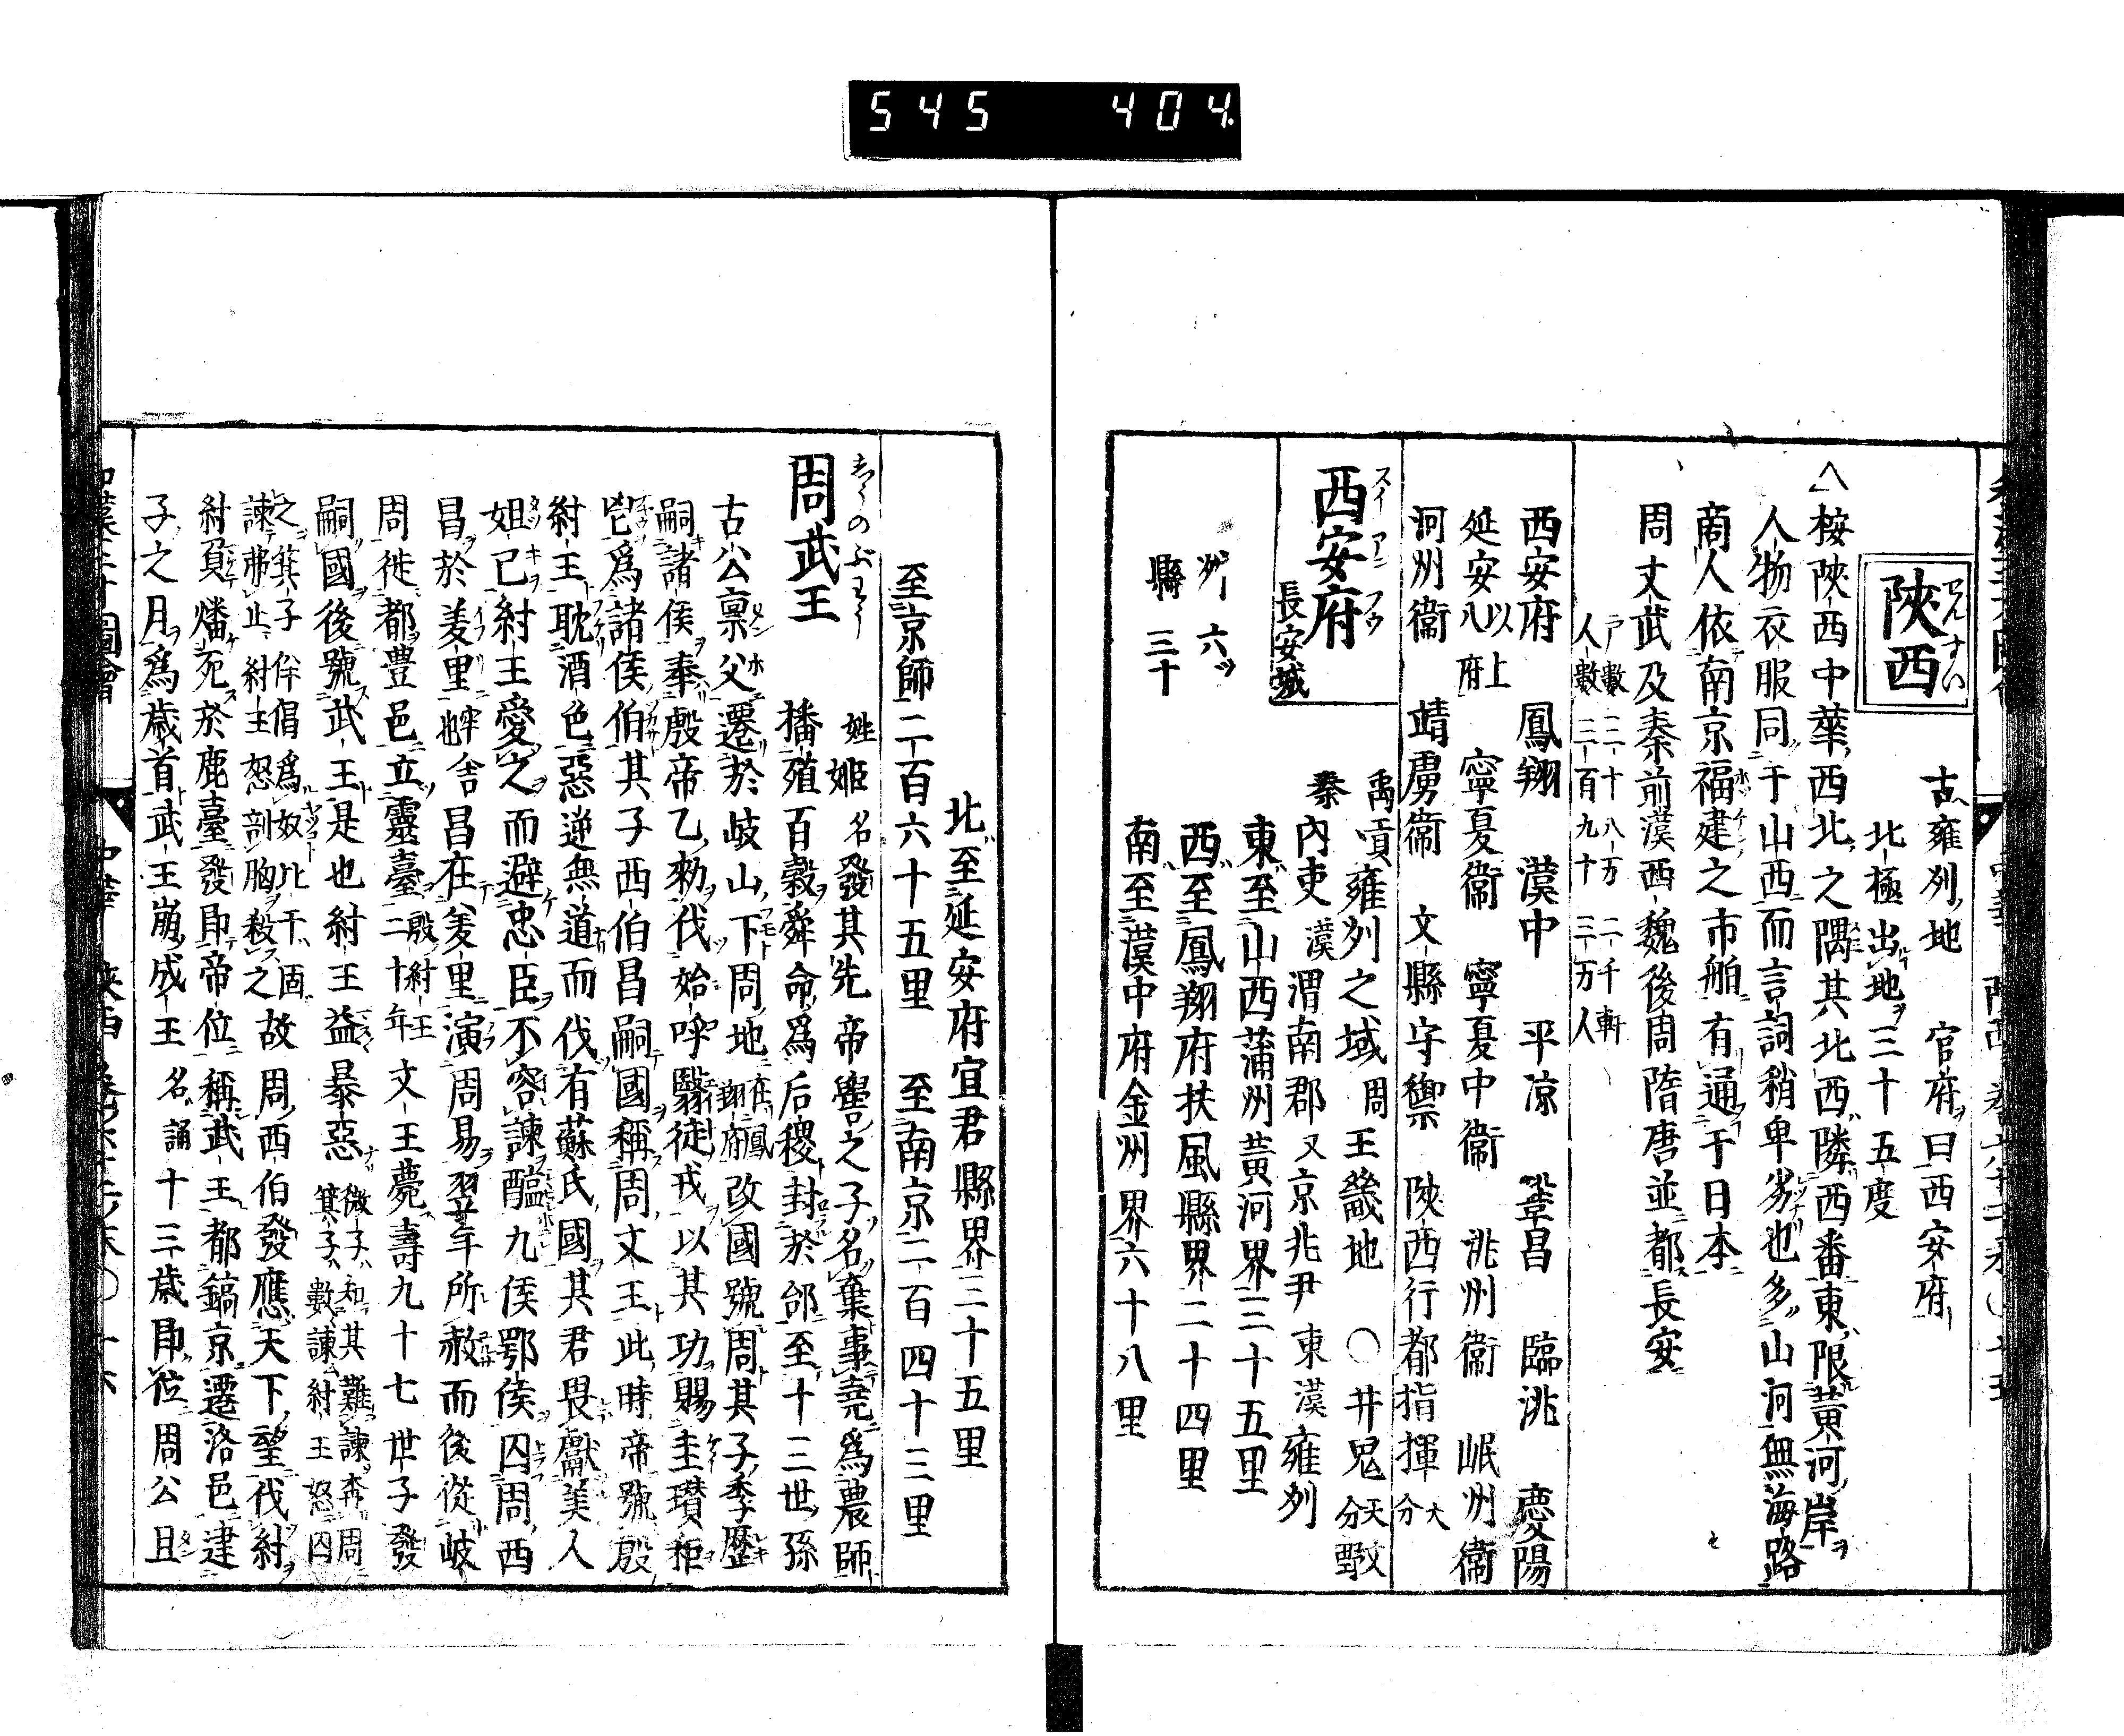 545 404
陝西
古雍州地 官府曰西安府
北極出地三十五度
△按陝西中華西北之隅其北西隣西番東限黃河岸
人物衣服同于山西而言詞稍卑劣也多山河無海路
商人依南京福建之市舶有通于日本
周文武及秦前漢西魏後周隋唐並都長安
戸數三十八万二千軒
人數三百九十三万人
西安府 鳳翔 漢中 平凉 鞏昌 臨洮 慶陽
延安以上八府 寧夏衞 寧夏中衞 洮州衞 岷州衞
河州衞 靖虜衞 文縣守禦 陝西行都指揮
西安府
長安城
禹貢雍州之域周王畿地 〇井鬼天文分野
秦內史漢渭南郡又京兆尹東漢雍州
東至山西蒲州黃河界三十五里
州六ツ 西至鳳翔府扶風縣界二十四里
縣三十 南至漢中府金州界六十八里
北至延安府宜君縣界三十五里
至京師二百六十五里 至南京二百四十三里
周武王
姓姬名發其先帝嚳之子名棄事堯爲農師
播殖百穀舜命爲后稷封於邰至十三世孫
古公亶父遷於岐山下周地在鳳翔府改國號周其子季歷
嗣諸侯奉殷帝乙勅伐始呼翳徒戎以其功賜圭瓚秬
鬯爲諸侯伯其子西伯昌嗣國稱周文王此時帝號殷
紂王耽酒色惡逆無道而伐有蘇氏國其君畏獻美人
妲己紂王愛之而避忠臣不容諫醢九侯鄂侯囚周西
昌於羑里牢也舍昌在羑里演周易翌年所赦而後從岐
周徙都豊邑立靈臺殷紂王二十年文王薨壽九十七世子發
嗣國後號武王是也紂王益暴惡微子知其難諫奔周箕子數諫紂王怒囚
之箕子佯倡爲奴比干固諫弗止紂王怒剖胸殺之故周西伯發應天下望伐紂
紂負燔死於鹿臺發即帝位稱武王都鎬京遷洛邑建
子之月爲歲首武王崩成王名誦十三歲即位周公旦